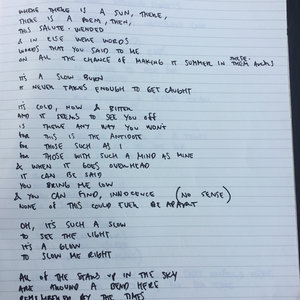 WHERE THERE IS A SUN, THERE,
THERE IS A POEM, THEN,
THIS SALUTE - WENDED
& IN ELSE WERE WORDS
WORDS THAT YOU SAID TO ME
ON ALL THE CHANCE OF MAKING IT SUMMER IN THESE THEM AREAS
IT'S A SLOW BURN
IT NEVER TAKES ENOUGH TO GET CAUGHT
IT'S COLD, NOW & BITTER
AND IT SEEMS TO SEE YOU OFF
IS THERE ANY WAY YOU WON'T
FOR THIS IS THE ANTIDOTE
FOR THOSE SUCH AS I
FOR THOSE WITH SUCH A MIND AS MINE
& WHEN IT GOES OVERHEAD
IT CAN BE SAID
YOU BRING ME LOW
& YOU CAN FIND, INNOCENCE (NO SENSE)
NONE OF THIS COULD EVER BE APART
OH, IT'S SUCH A SLOW
TO SEE THE LIGHT
IT'S A GLOW
TO SLOW ME RIGHT
ALL OF THE STARS UP IN THE SKY
ARE AROUND A BEND HERE
REMEMBERED BY THE TIMES